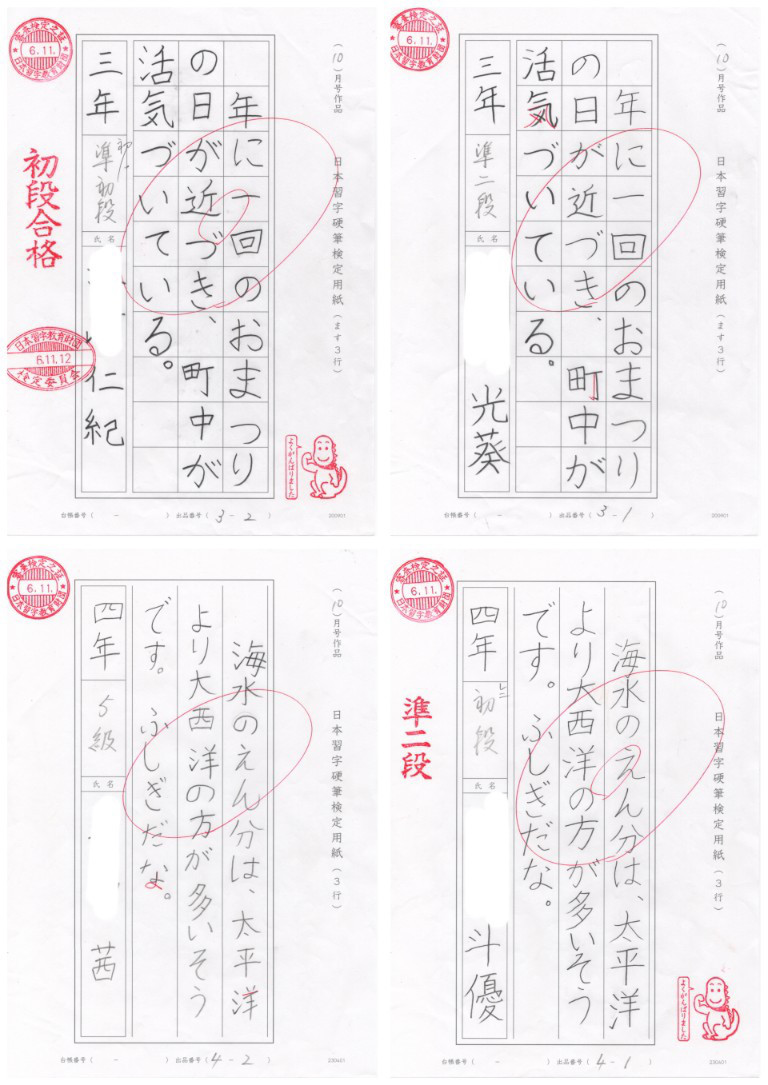 (10)月号作品
日本習字硬筆検定用紙(ます3行)
年に一回のおまつり
の日が近づき、町中が
活気づいている。
三年
準初段
氏名
仁紀
審査検定之証
6.11.
日本習字教育財団
初段合格
日本習字教育財団
6.11.12
検定委員会
よくがんばりました
台帳番号( - )
出品番号(3-2)
230401
(10)月号作品
日本習字硬筆検定用紙(ます3行)
年に一回のおまつり
の日が近づき、町中が
活気づいている。
三年
準二段
氏名
光葵
審査検定之証
6.11.
日本習字教育財団
台帳番号( - )
出品番号(3-1)
230401
(10)月号作品
日本習字硬筆検定用紙(3行)
海水のえん分は、太平洋
より大西洋の方が多いそう
です。ふしぎだな。
四年
5級
氏名
茜
審査検定之証
6.11.
日本習字教育財団
台帳番号( - )
出品番号(4-2)
230401
(10)月号作品
日本習字硬筆検定用紙(3行)
海水のえん分は、太平洋
より大西洋の方が多いそう
です。ふしぎだな。
四年
初段
氏名
斗優
審査検定之証
6.11.
日本習字教育財団
準二段
よくがんばりました
台帳番号( - )
出品番号(4-1)
230401